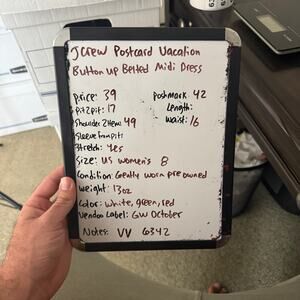 JCREW Postcard Vacation
Button up Belted Midi Dress
price: 39 Poshmark 42
Pit2pit: 17 Length:
Shoulder2Hem: 49 Waist: 16
Sleeve from pit:
Stretch: yes
Size: US women's 8
Condition: Gently worn pre owned
Weight: 13oz
Color: white, green, red
Vendoo Label: GW October
Notes: VV 6342